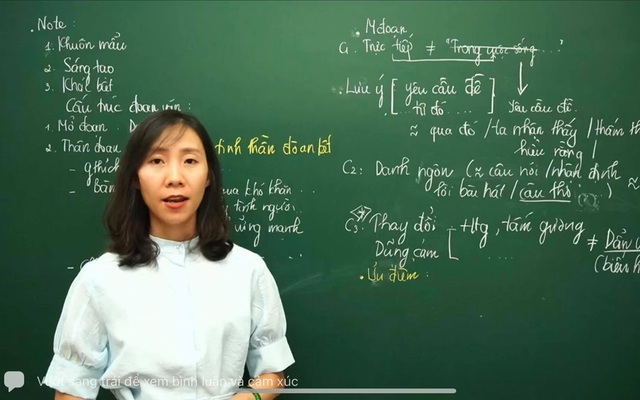 Note:
1. Khuôn mẫu
2. Sáng tạo
3. Khái bát
Cấu trúc đoạn văn:
1. Mở đoạn:
2. Thân đoạn
tinh thần đoàn kết
- gthích
- Bàn
khó khăn..
tình người
vững mạnh
Mđoạn
C1. Trực tiếp ≠ "Trong cuộc sống...."
. Lưu ý [ yêu cầu đề ] Yêu cầu đề.
Từ đó ....
≈ qua đó / ta nhận thấy / thấm th
hiểu rằng /
C2: Danh ngôn (≈ câu nói / nhận định
lời bài hát / câu thơ ) ≈
C3: Thay đổi - tg, tấm gương ≠ Dẫn
Dũng cảm ..... (biểu h
. Ưu điểm:
Vuốt sang trái để xem bình luận và cảm xúc